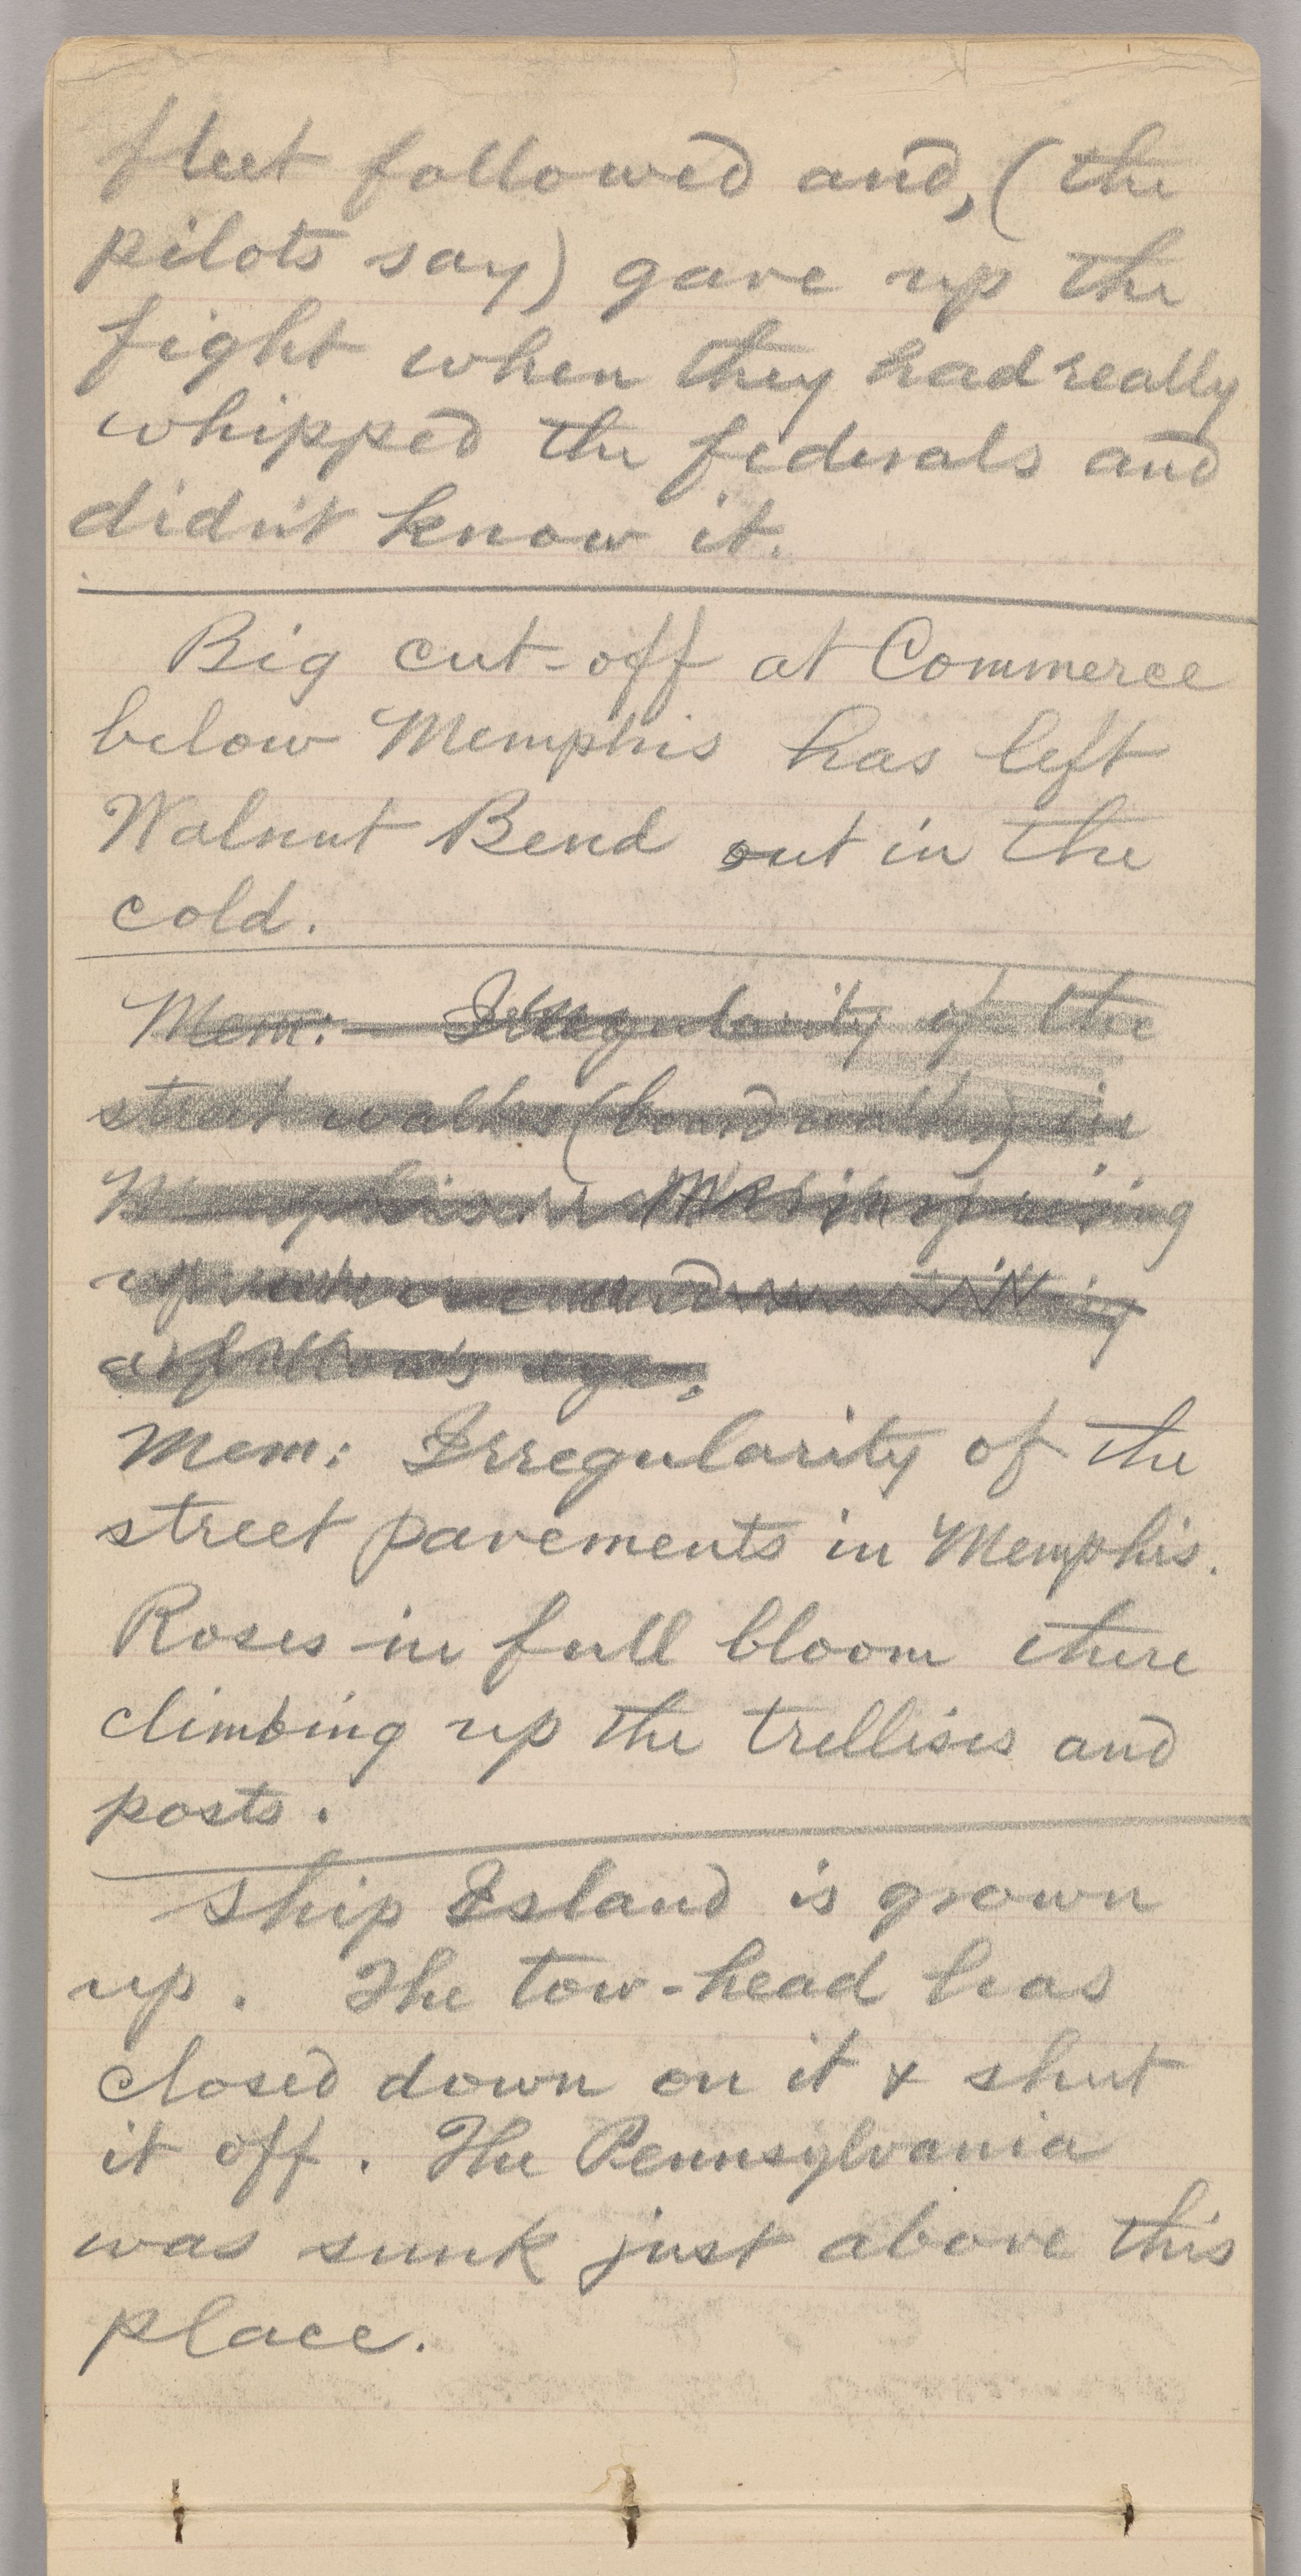 fleet followed and, (the
pilots say) gave up the
fight when they had really
whipped the federals and
didn't know it.
Big cut-off at Commerce
below Memphis has left
Walnut Bend out in the
cold.
Mem:— Irregularity of the
street walks (board walks) in
Memphis rising
up
eye.
Mem: Irregularity of the
street pavements in Memphis.
Roses in full bloom there
climbing up the trellises and
posts.
Ship Island is grown
up. The tow-head has
closed down on it & shut
it off. The Pennsylvania
was sunk just above this
place.